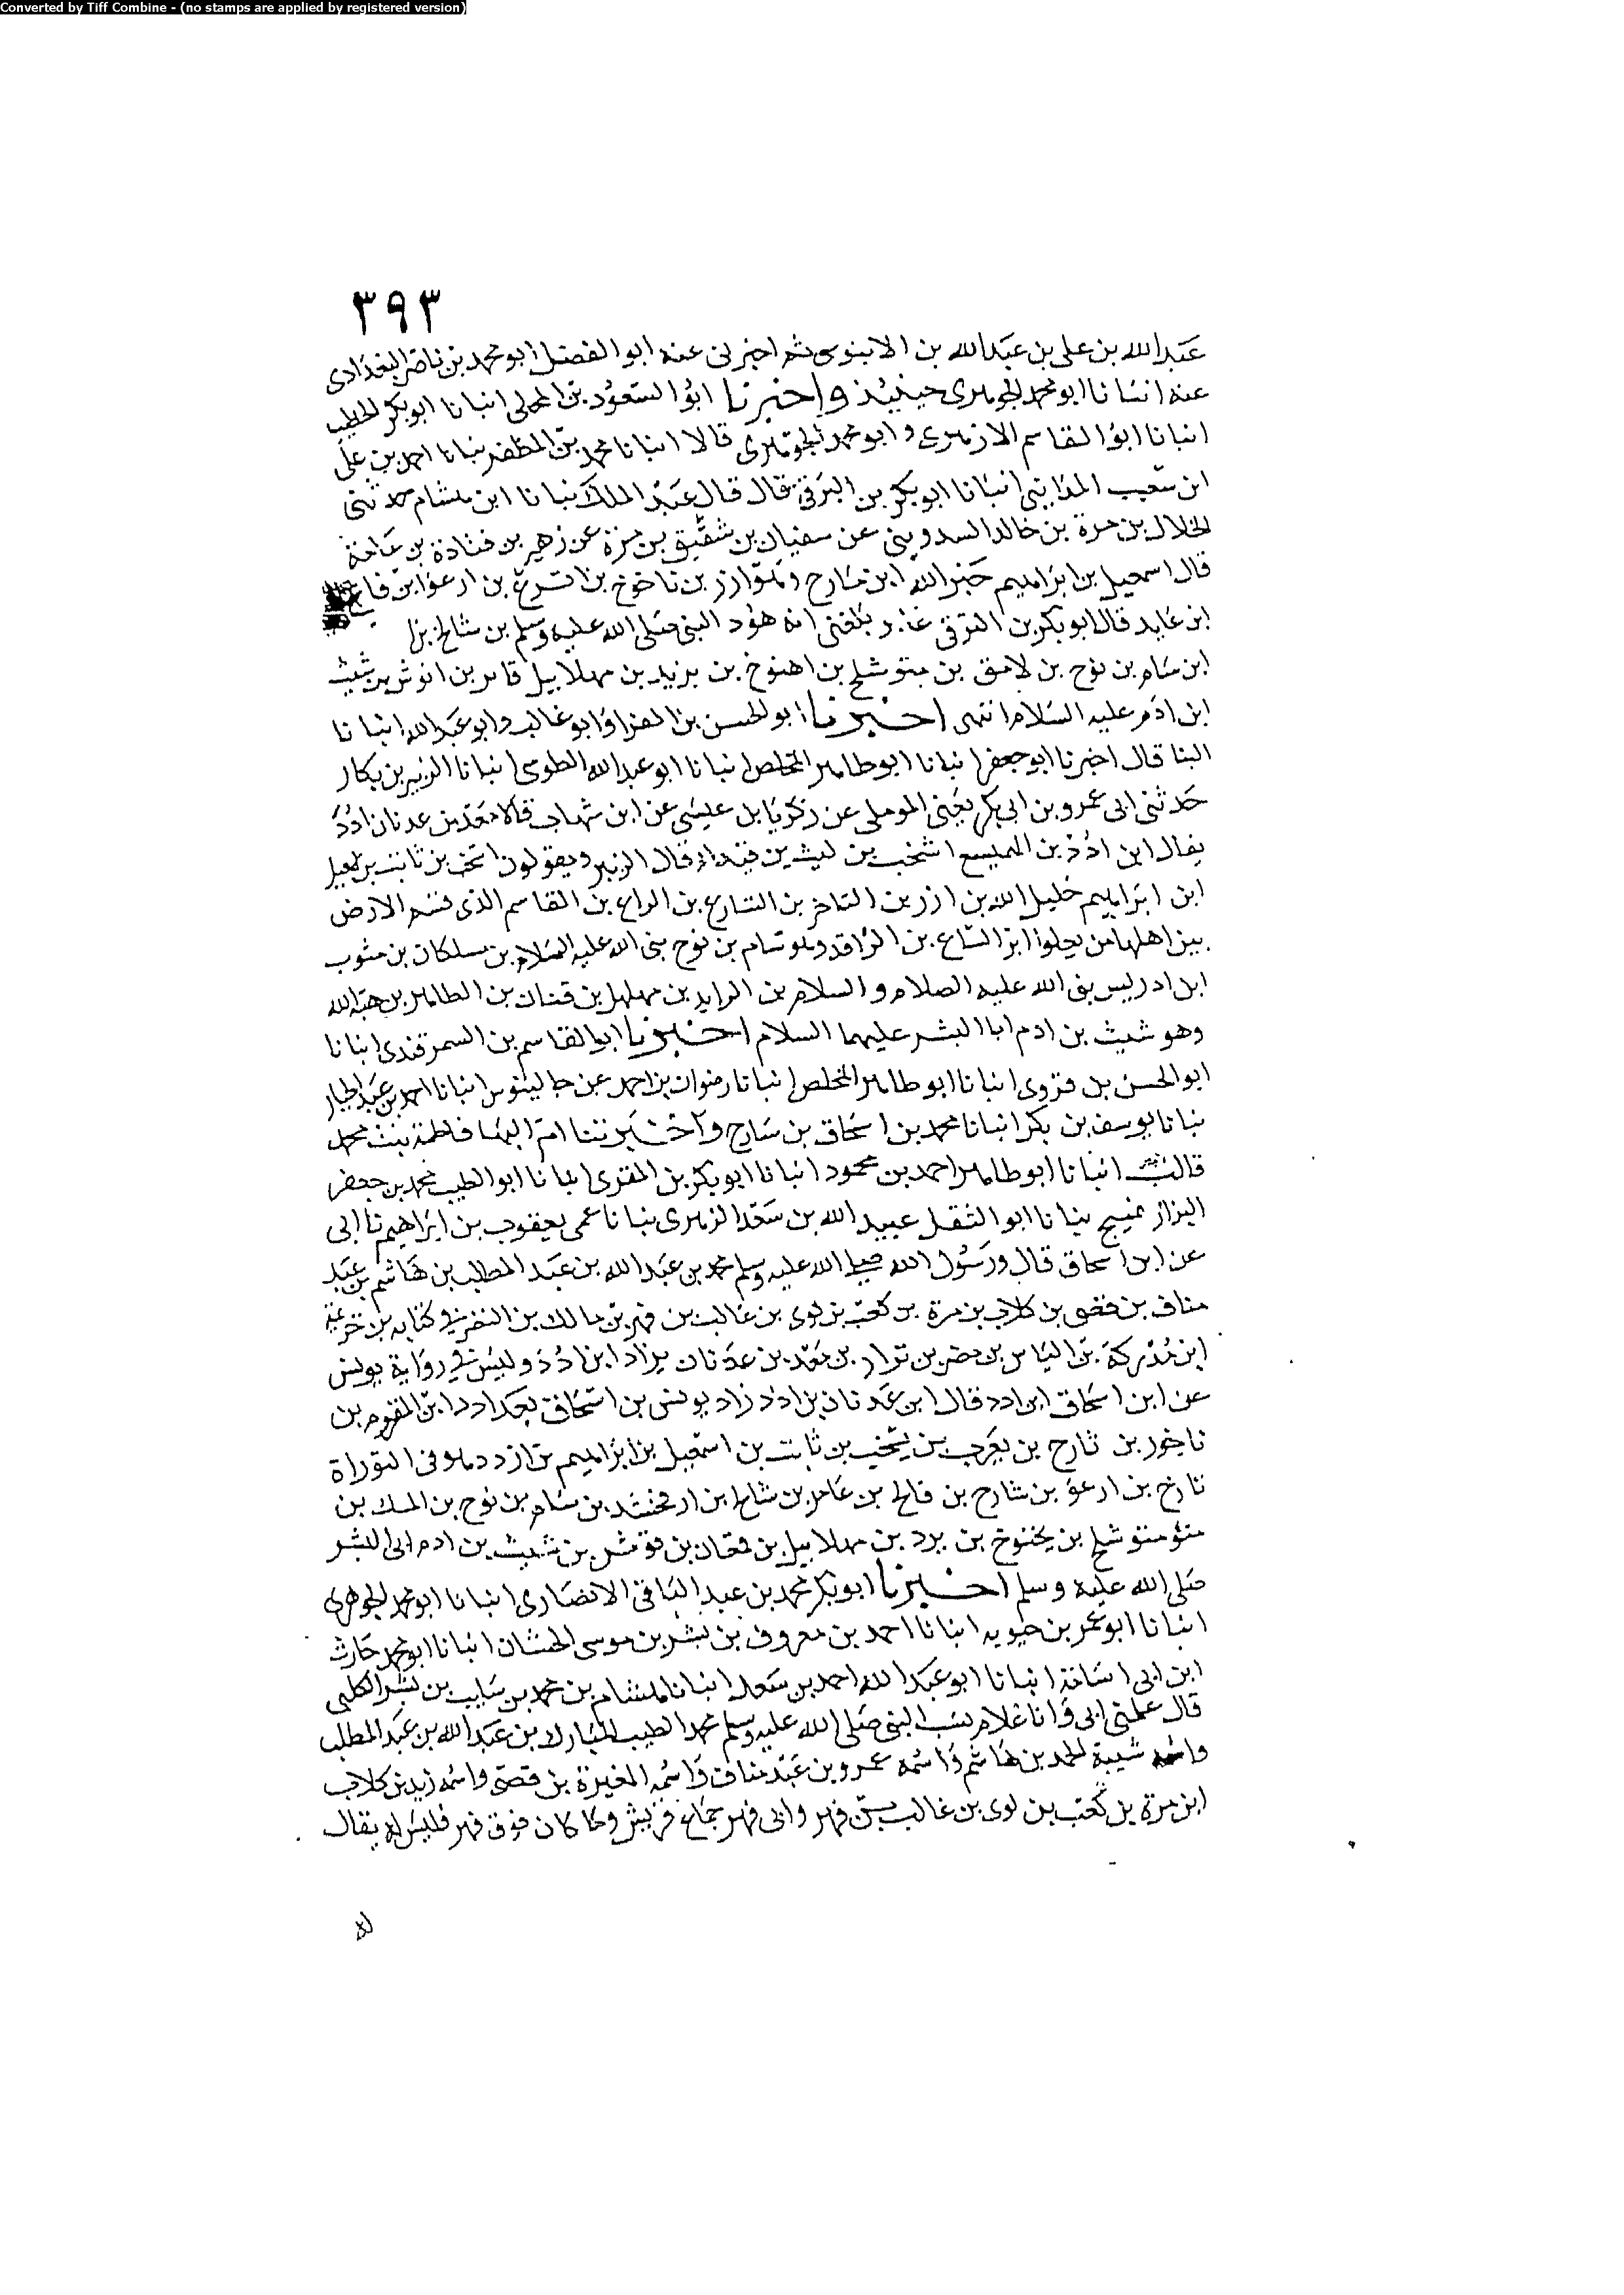 Converted by Tiff Combine - (no stamps are applied by registered version)
٣٩٣
عبد الله بن على بن عبد الله بن الابنوسى ثم اخبرنى عنه ابو الفضل ابو محمد بن ناصر البغدادى
عنه انبانا ابو محمد الجوهرى حينئذ واخبرنا ابو السعود بن المحلى انبانا ابو بكر الخطيب
انبانا ابو القاسم الازهرى وابو محمد الجوهرى قالا انبانا محمد بن المظفر نبانا احمد بن على
ابن شعيب المدايني انبانا ابو بكر بن البرقى قال قال عبد الملك نبانا ابن هشام حدثنى
الخلال بن مرة بن خالد السدوسى عن سفيان بن شقيق بن مرة عن زهير بن قتادة بن
قال اسمعيل بن ابراهيم خبر الله ابن تارح وهو ازر بن ناخوخ بن اسرع بن ارعوا بن
ابن عابد قال ابو بكر بن البرقى عابر بلغنى انه هود النبى صلى الله عليه وسلم بن شالخ بن
ابن سام بن نوح بن لامق بن متوشلخ بن اهنوخ بن يزيد بن مهلاييل قاين بن انوش بن شيث
ابن ادم عليه السلام انتهى اخبرنا ابو الحسن بن الفرا وابو غالب وابو عبد الله انبانا
البنا قال اخبرنا ابو جعفر انبانا ابو طاهر المخلص انبانا ابو عبد الله الطوسى انبانا الزبير بن بكار
حدثنى ابى عمرو بن ابى بكر يعنى الموملى عن زكريا بن عيسى عن ابن شهاب قالا معد بن عدنان ادد
يقال ابن ادد بن الهميسع اشخب بن ليث بن قيدار قال الزبير ويقولون اشخب بن ثابت بن اسمعيل
ابن ابراهيم خليل الله بن ازر بن التاخر بن الشارع بن الراع بن القاسم الذى قسم الارض
بين اهلها من يحلوا ابن الشاع بن الراقد وهو سام بن نوح نبى الله عليه السلام بن سلكان بن مثوب
ابن ادريس نبى الله عليه الصلام والسلام بن الرايد بن مهلهل بن قنان بن الطاهر بن هبة الله
وهو شيث بن ادم ابا البشر عليهما السلام اخبرنا ابو القاسم بن السمرقندى انبانا
ابو الحسن بن قزوى انبانا ابو طاهر المخلص انبانا رضوان بن احمد عن جالينوس انبانا احمد بن عبد الجبار
نبانا يوسف بن بكر انبانا محمد بن اسحاق بن سارح واخبرتنا ام البها فاطمة بنت محمد
قالت انبانا ابو طاهر احمد بن محمود انبانا ابو بكر بن المقرى انبانا ابو الطيب محمد بن جعفر
البزاز بمنبج نبانا ابو الثقل عبيد الله بن سعد الزهرى نبانا عمى يعقوب بن ابراهيم نا ابى
عن ابن اسحاق قال ورسول الله صلى الله عليه وسلم محمد بن عبد الله بن عبد المطلب بن هاشم بن عبد
مناف بن قصى بن كلاب بن مرة بن كعب بن لوى بن غالب بن فهر بن مالك بن النضر فى كتابه بن خزيمة
ابن مدركة بن الياس بن مضر بن نزار بن معد بن عدنان يزاد ابن ادد وليس فى رواية يونس
عن ابن اسحاق ابن ادد قال ابن عدنان بن ادد زاد يونس بن اسحاق بعد ادد ابن المقوم بن
ناخور بن تارح بن يعرب بن يشخب بن ثابت بن اسمعيل بن ابراهيم بن ازر وهو فى التوراة
تارخ بن ارعو بن شارح بن فالخ بن عامر بن شالخ ابن ارفخشد بن سام بن نوح بن الملك بن
متوشلخ بن يخنوخ بن يرد بن مهلاييل بن قعان بن قوش بن شيث بن ادم ابى البشر
صلى الله عليه وسلم اخبرنا ابو بكر محمد بن عبد الباقى الانصارى انبانا ابو محمد الجوهرى
انبانا ابو عمر بن حيويه انبانا احمد بن معروف بن بشر بن موسى الخشان انبانا ابو محمد حارث
ابن ابى اسامة انبانا ابو عبد الله احمد بن سعد انبانا هشام بن محمد بن سايب بن بشر الكلبى
قال علمنى ابى وانا غلام نسب النبى صلى الله عليه وسلم محمد الطيب المبارك بن عبد الله بن عبد المطلب
واسمه شيبة الحمد بن هاشم واسمه عمرو بن عبد مناف واسمه المغيرة بن قصى واسمه زيد بن كلاب
ابن مرة بن كعب بن لوى بن غالب بن فهر والى فهر جماع قريش وما كان فوق فهر فليس له يقال
له